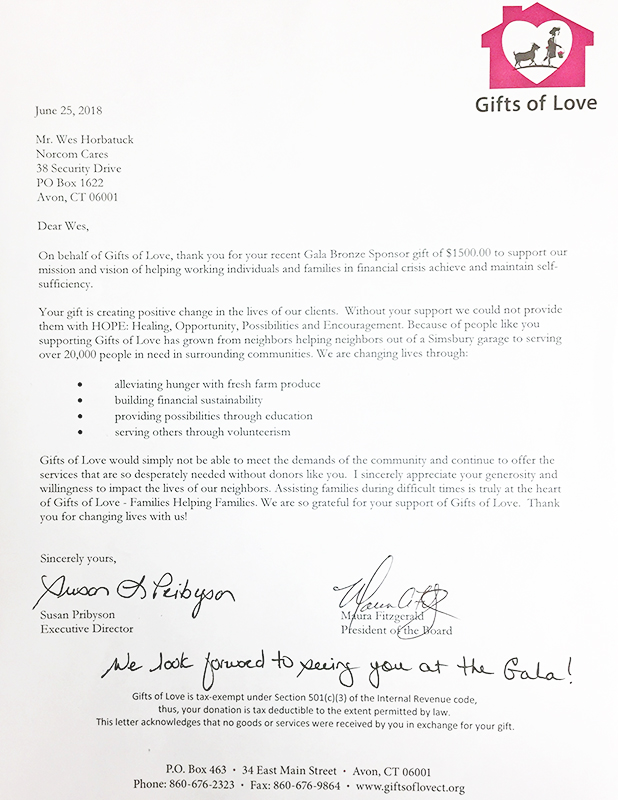 Gifts of Love
June 25, 2018
Mr. Wes Horbatuck
Norcom Cares
38 Security Drive
PO Box 1622
Avon, CT 06001
Dear Wes,
On behalf of Gifts of Love, thank you for your recent Gala Bronze Sponsor gift of $1500.00 to support our
mission and vision of helping working individuals and families in financial crisis achieve and maintain self-
sufficiency.
Your gift is creating positive change in the lives of our clients.  Without your support we could not provide
them with HOPE: Healing, Opportunity, Possibilities and Encouragement. Because of people like you
supporting Gifts of Love has grown from neighbors helping neighbors out of a Simsbury garage to serving
over 20,000 people in need in surrounding communities. We are changing lives through:
• alleviating hunger with fresh farm produce
• building financial sustainability
• providing possibilities through education
• serving others through volunteerism
Gifts of Love would simply not be able to meet the demands of the community and continue to offer the
services that are so desperately needed without donors like you.  I sincerely appreciate your generosity and
willingness to impact the lives of our neighbors. Assisting families during difficult times is truly at the heart
of Gifts of Love - Families Helping Families. We are so grateful for your support of Gifts of Love.  Thank
you for changing lives with us!
Sincerely yours,
Susan S Pribyson
Susan Pribyson
Executive Director
Maura Fitzgerald
President of the Board
We look forward to seeing you at the Gala!
Gifts of Love is tax-exempt under Section 501(c)(3) of the Internal Revenue code,
thus, your donation is tax deductible to the extent permitted by law.
This letter acknowledges that no goods or services were received by you in exchange for your gift.
P.O. Box 463 · 34 East Main Street · Avon, CT 06001
Phone: 860-676-2323 · Fax: 860-676-9864 · www.giftsoflovect.org